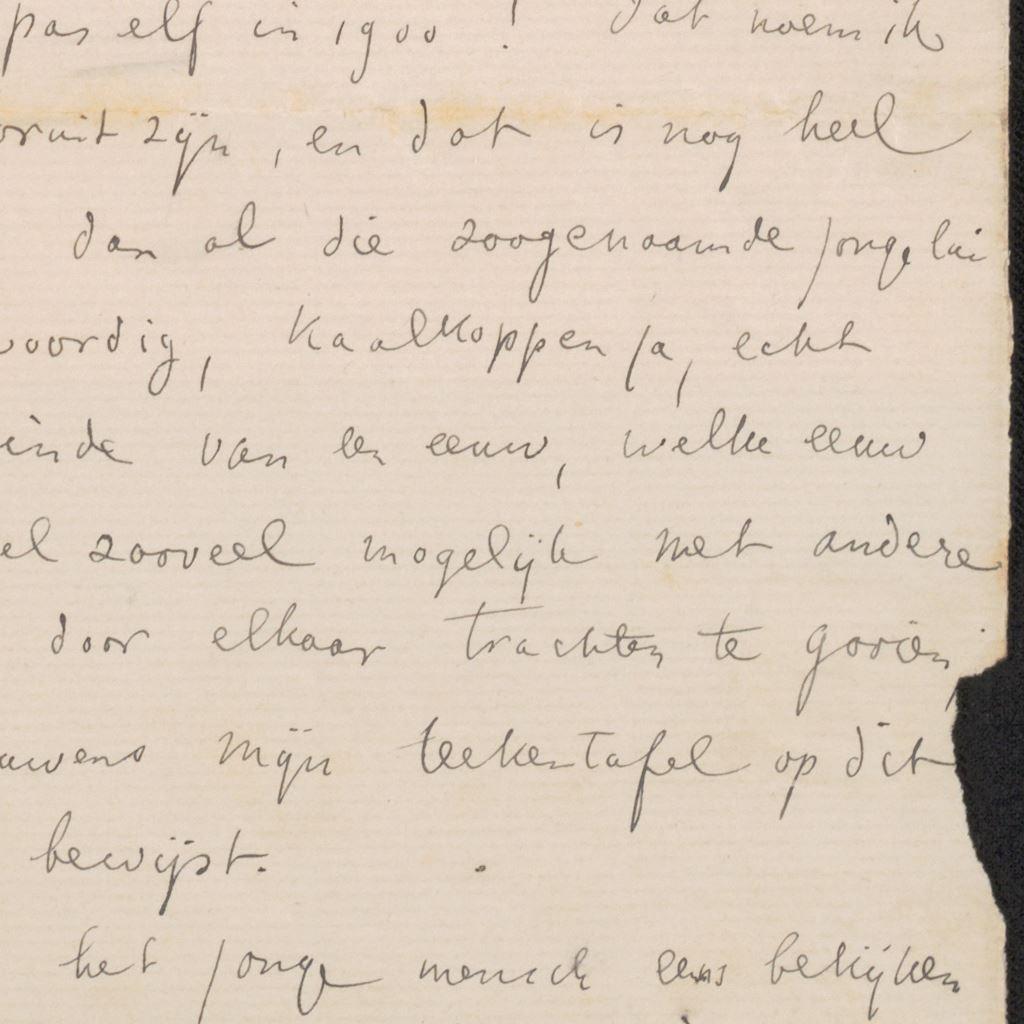 pas elf in 1900! Dat noem ik
oruit zijn, en dat is nog heel
dan al die zoogenaamde jongelui
woordig, kaalkoppen ja, echt
einde van een eeuw, welke eeuw
el zooveel mogelijk met andere
door elkaar trachten te gooien,
uwens mijn teekentafel op dit
bewijst.
het jonge mensch eens bekijken